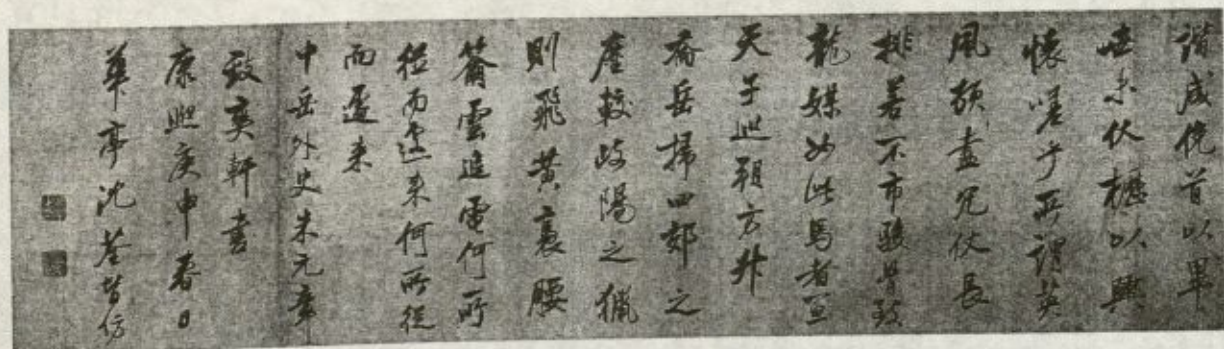 諧咸俛首以畢
世未伏櫪以興
懷嗟乎所謂英
風頓盡冗仗長
排若不市駿骨致
龍媒如此馬者一旦
天子巡朔方升
喬岳掃四郊之
塵較岐陽之獵
則飛黄褭腰
籋雲追電何所
從而遽来何所從
而遽来
中岳外史米元章
致爽軒書
康熙庚申春日
華亭沈荃仿